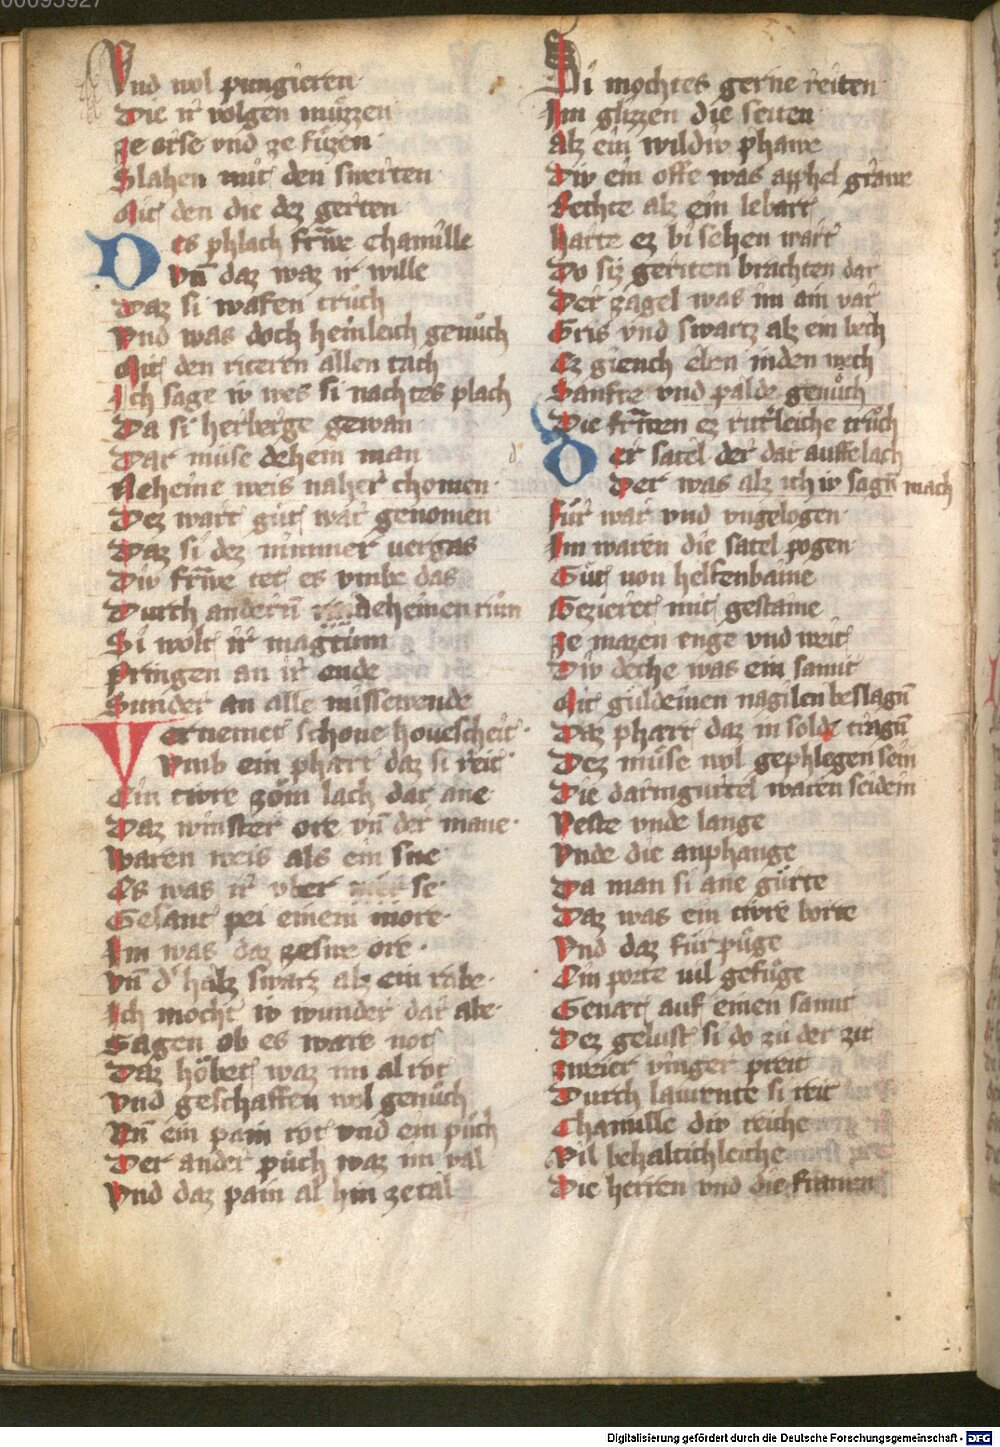 00095927
Vnd wol pungieren
Die ir volgen muͤzzen
ze orse vnd ze fuͤzen
Slahen mit den swerten
Mit den die dez gerten
Des phlach frͮwe Chamille
Vn̄ daz waz ir wille
Daz si wafen truͤch
Vnd was doch heinleich genuͦch
Mit den riteren allen tach
Ich sage iv wes si nachtes plach
Da si herberge gewan
Dar muͤse dehein man
Neheine weis naher chomen
Dez wart guͦt war genomen
Daz si dez nimmer uergas
Div frͮwe tet es vmbe das
Durch anderū deheinen rům
Si wolt ir magtům
Pringen an ir ende
Sunder an alle missewende
Vernemet schone houescheit
Vmb ein phart daz si reit
Ein tivre zoͮm lach dar ane
Daz winster ore vn̄ der mane
Waren weis als ein sne
Es was ir vber se
Gesant pei einem more
Im was daz zeswe ore
Vn̄ d' halz swarz alz ein rabe
Ich mocht iv wunder dar abe
Sagen ob es ware not
Daz hoͮbet waz im al rot
Vnd geschaffen wol genuͦch
Vn̄ ein pain rot vnd ein půch
Der ander půch waz im val
Vnd daz pain al hin zetal
Si mochtes gerne reiten
Im glizzen die seiten
Alz ein wildiv phawe
Div ein offe was apphel grawe
Rechte alz ein lebart
Harte ez bi sehen wart
Do siz geriten brachten dar
Der zagel was im ain var
Gris vnd swartz alz ein bech
Ez giench eben in den wech
Sanfte vnd palde genuͦch
Die frͮwen ez ritterleiche truͦch
Der satel der dar auffe lach
Der was alz ich iv sagn̄ mach
Fuͤr war vnd vngelogen
Im waren die satel pogen
Guͦt uon helfenbaine
Gezieret mit gestaine
ze mazen enge vnd weit
Div deche was ein samit
Mit guldeinen nagilen beslagn̄
Daz phart daz in solde tragn̄
Dez muͤse wol gephlegen sein
Die darmgurtel waren seidein
Veste vnde lange
Vnde die anphange
Da man si ane guͤrte
Daz was ein tivre borte
Vnd daz fuͤrpuͤge
Ein porte uil gefuͤge
Genæt auf einen samit
Dez gelust si do zů der zit
zweier vinger preit
Durch lawrente si reit
Chamille div reiche
Vil behaltichleiche
Die herren vnd die frawen
Digitalisierung gefördert durch die Deutsche Forschungsgemeinschaft - DFG